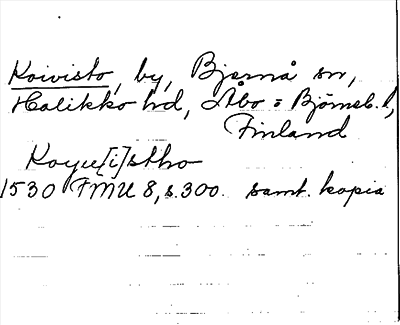 Koivisto, by, Bjernå sn,
Halikko hd, Åbo o Björneb. l,
Finland
Koyu[i]stho
1530 FMU 8, s. 300. samt. kopia